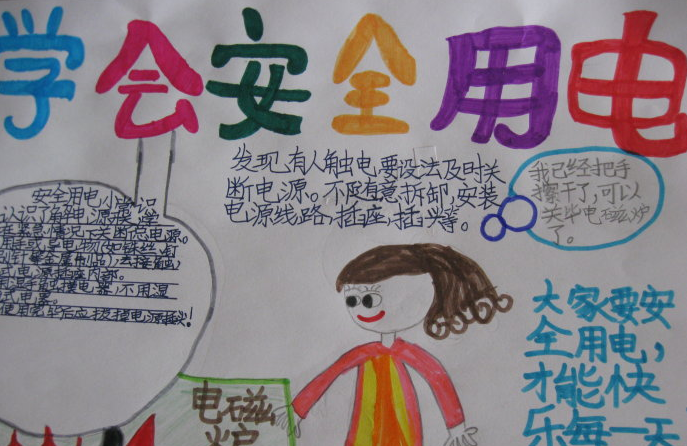 学会安全用电
发现有人触电要设法及时关
断电源。不随意拆卸,安装
电源线路,插座,插头等。
我已经把手
擦干了,可以
关毕电磁炉
了。
安全用电小常识
认识了解电源总
在紧急情况下关断总电源。
用手或导电物(如铁丝,钉
别针等金属制品)去接触,
试电源插座内部。
用湿手触摸电器,不用湿
试电器。
使用完毕后应拔掉电源插头!
大家要安
全用电,
才能快
乐每一天
电磁
炉